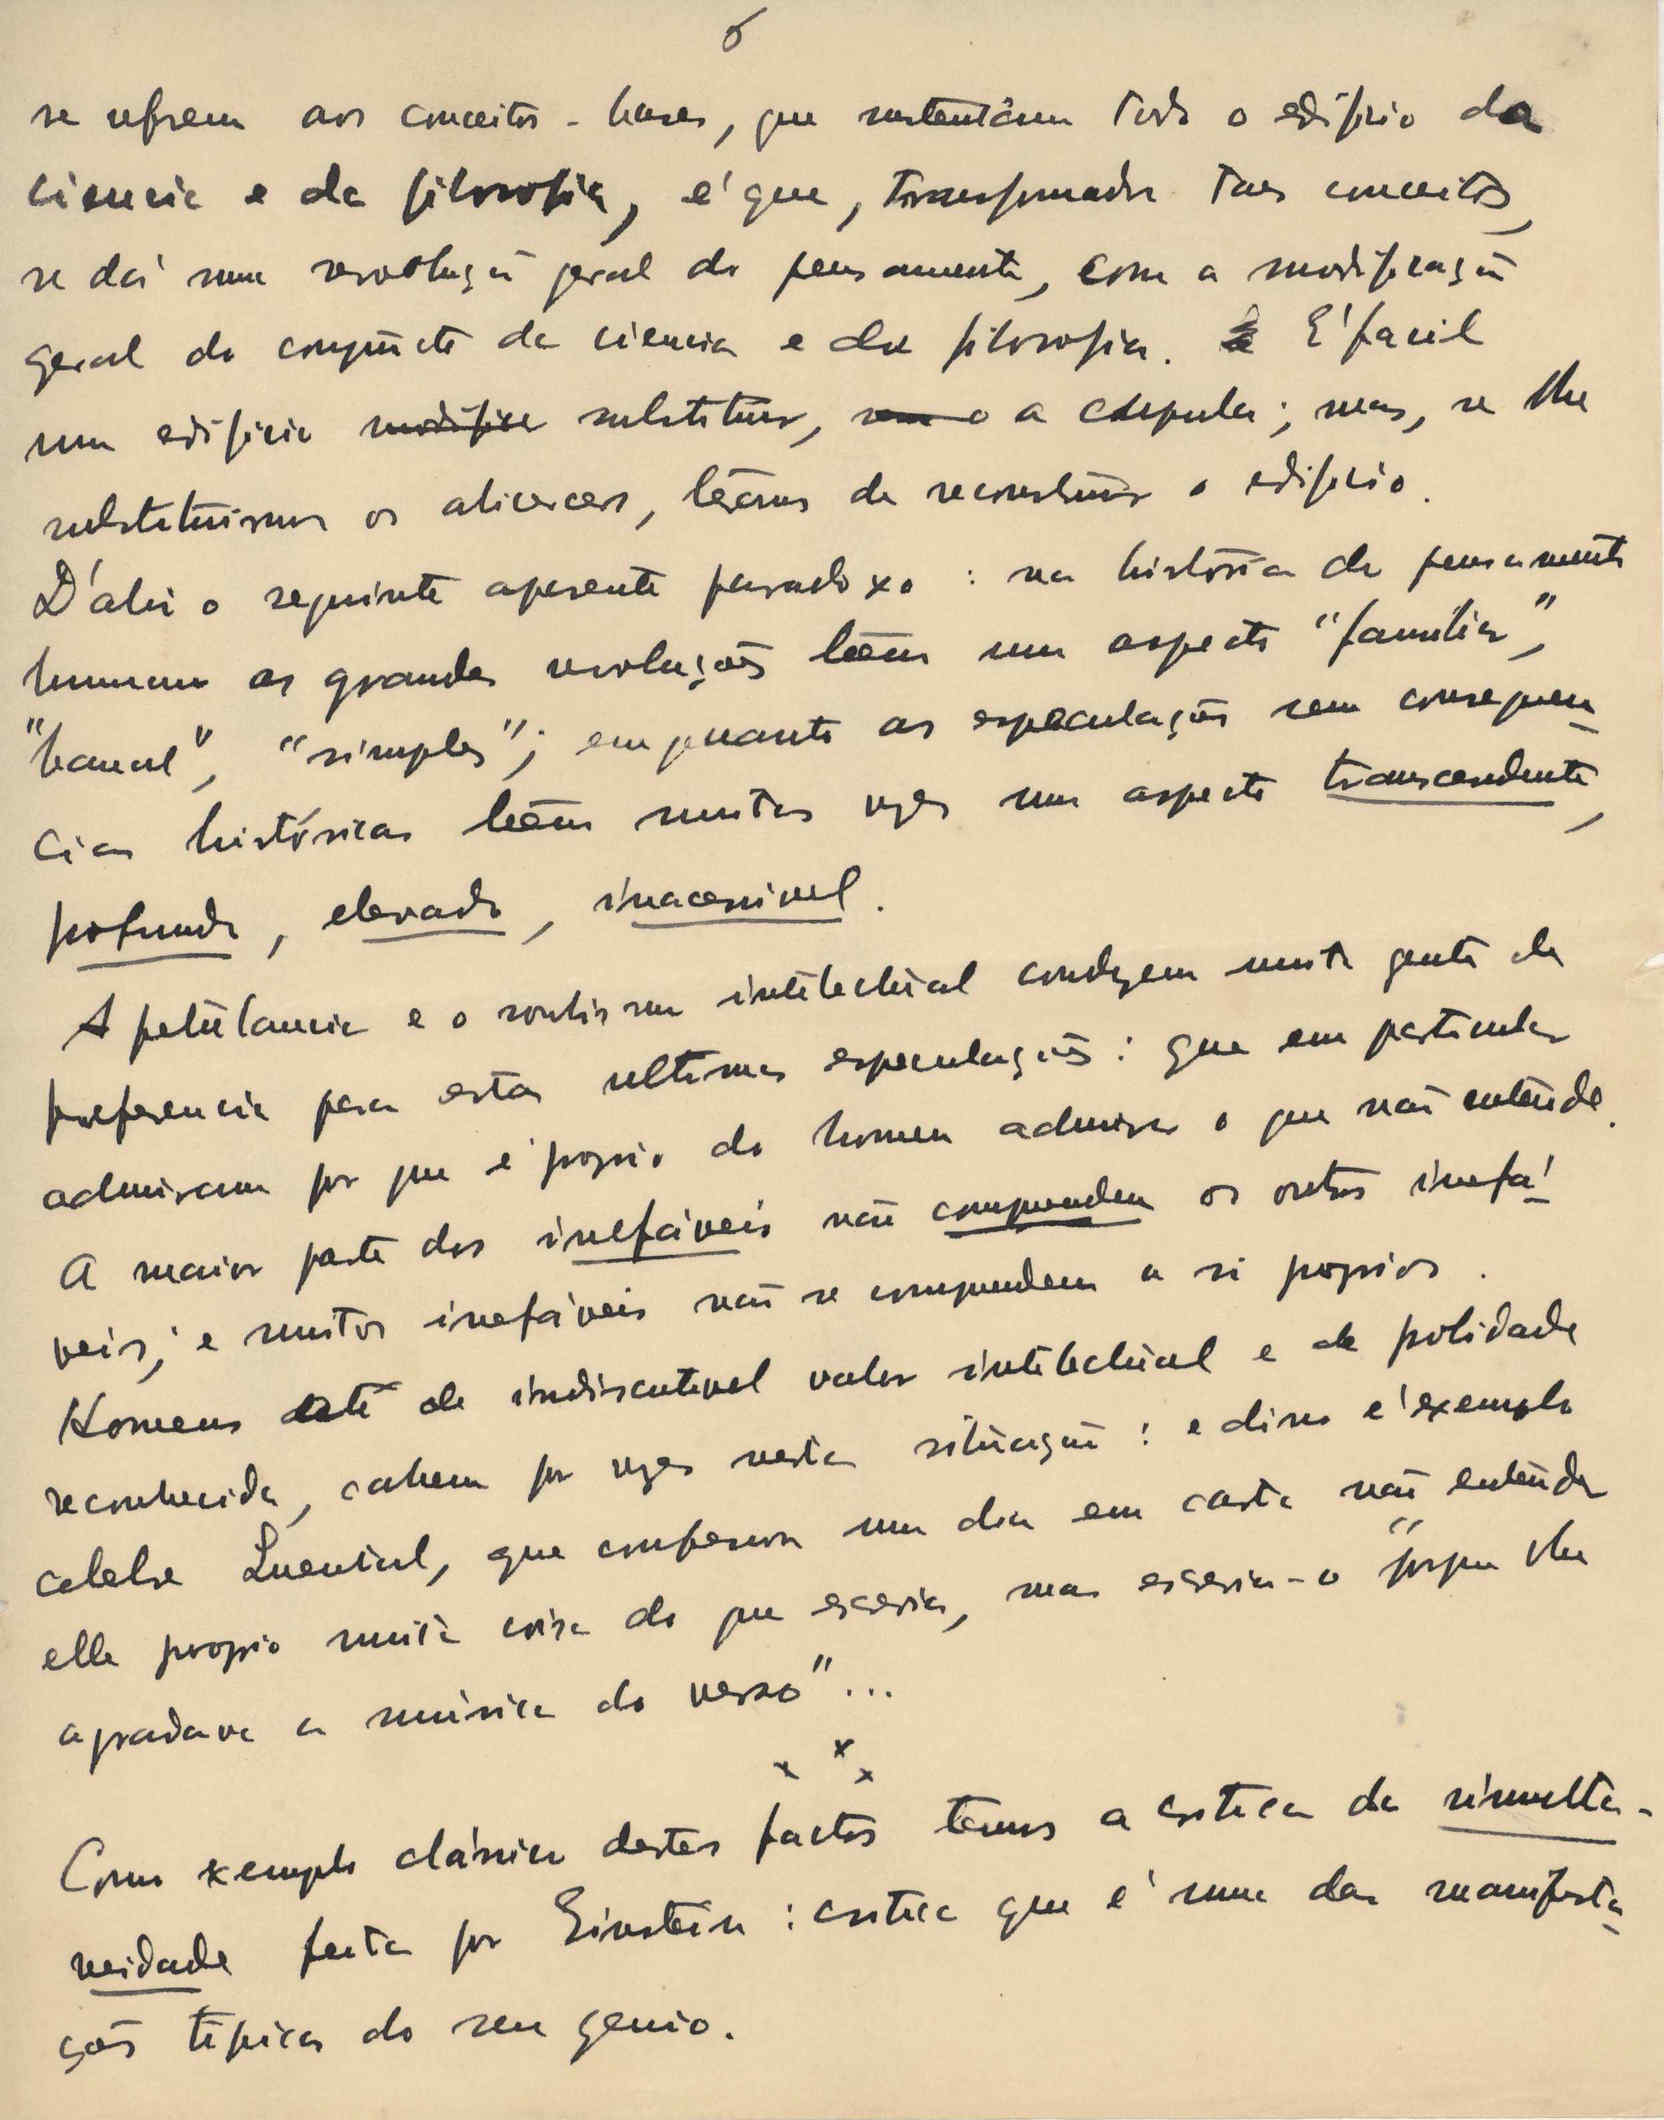 6
se referem aos conceitos-bases, que sustentam todo o edificio da
ciencia e da filosofia, é que, transformados taes conceitos,
se dá uma revolução geral do pensamento, com a modificação
geral do conjuncto da ciencia e da filosofia. E' facil
num edificio modificar substituir, a cúpula; mas, se lhe
substituirmos os alicerces, teēmos de reconstruir o edificio.
D'ahi o seguinte aparente paradoxo: na história do pensamento
humano as grandes revoluções teēm um aspecto "familiar",
"banal", "simples"; emquanto as especulações sem consequen-
cias históricas teēm muitas vezes um aspecto transcendente,
profundo, elevado, inacessivel.
A petulancia e o snobismo intelectual conduzem muita gente da
preferencia para estas ultimas especulações: que em particular
admiram por que é proprio do homem admirar o que não entende.
A maior parte dos inefáveis não comprendem os outros inefá-
veis; e muitos inefáveis não se comprendem a si proprios.
Homens até de indiscutivel valor intelectual e de probidade
reconhecida, cahem por vezes nesta situação: e disso é exemplo
celebre Quental, que confessou um dia em carta não entender
elle proprio muita coisa do que escrevia, mas escrevia-o "porque lhe
agradava a música do verso"...
x x x
Como exemplo clássico destes factos temos a critica da simulta-
neidade feita por Einstein: critica que é uma das manifesta-
ções tipicas do seu genio.